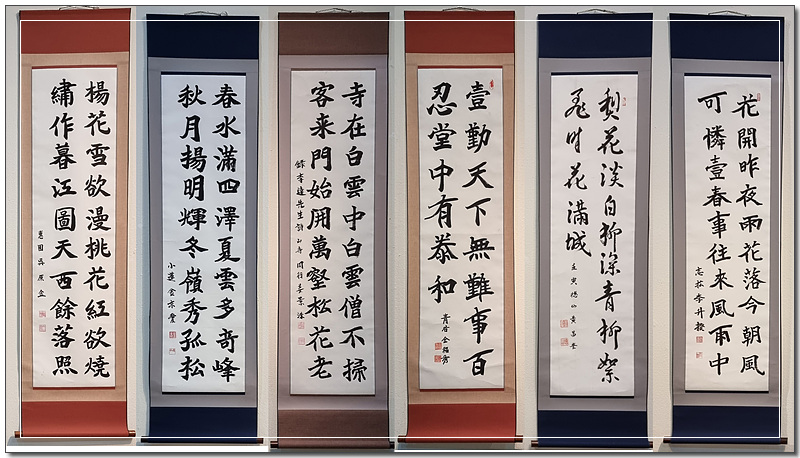 楊花雪欲漫桃花紅欲燒
繡作暮江圖天西餘落照
春水滿四澤夏雲多奇峰
秋月揚明輝冬嶺秀孤松
寺在白雲中白雲僧不掃
客来門始開萬壑松花老
壹勤天下無難事百
忍堂中有泰和
梨花淡白柳深青柳絮
飛時花滿城
花開昨夜雨花落今朝風
可憐壹春事往來風雨中